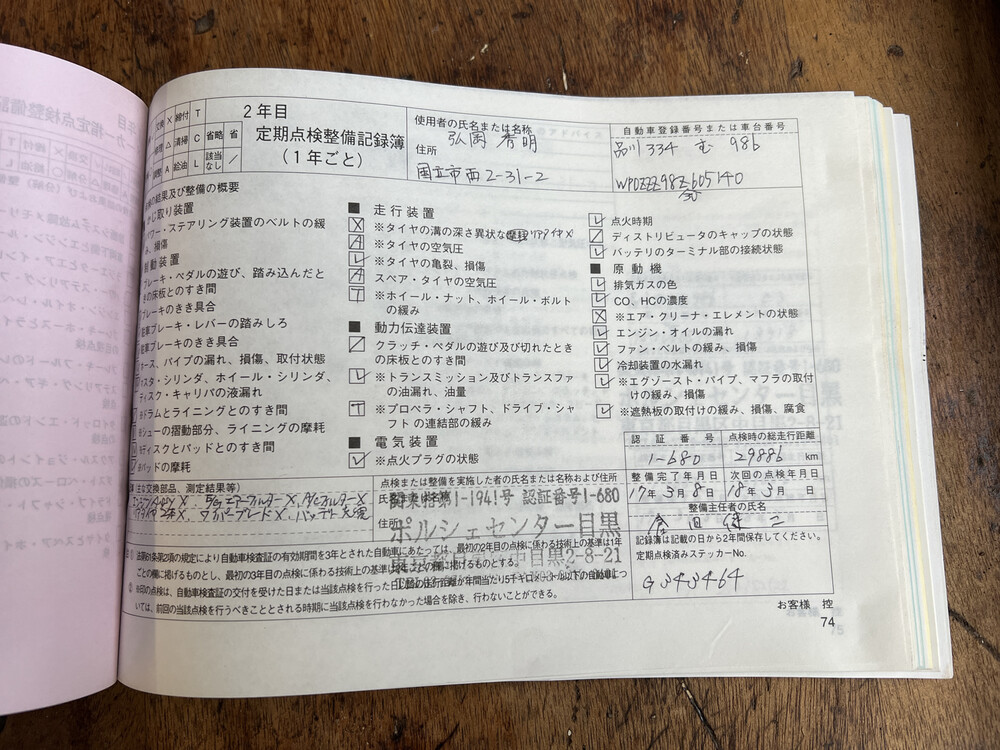 2年目
定期点検整備記録簿
(1年ごと)
交換 × 締付 T
修理 △ 清掃 C 省略 省
調整 A 給油 L 該当なし ／
使用者の氏名または名称
弘岡 秀明
住所
国立市西2-31-2
自動車登録番号または車台番号
品川 334 む 986
WP0ZZZ98Z
605140
点検の結果及び整備の概要
かじ取り装置
パワー・ステアリング装置のベルトの緩
み、損傷
制動装置
ブレーキ・ペダルの遊び、踏み込んだと
きの床板とのすき間
ブレーキのきき具合
駐車ブレーキ・レバーの踏みしろ
駐車ブレーキのきき具合
ホース、パイプの漏れ、損傷、取付状態
マスタ・シリンダ、ホイール・シリンダ、
ディスク・キャリパの液漏れ
※ドラムとライニングとのすき間
※シューの摺動部分、ライニングの摩耗
※ディスクとパッドとのすき間
※パッドの摩耗
■ 走行装置
X ※タイヤの溝の深さ異状な摩耗 リアタイヤX
A ※タイヤの空気圧
レ ※タイヤの亀裂、損傷
A スペア・タイヤの空気圧
T ※ホイール・ナット、ホイール・ボルト
の緩み
■ 動力伝達装置
／ クラッチ・ペダルの遊び及び切れたとき
の床板とのすき間
レ ※トランスミッション及びトランスファ
の油漏れ、油量
T ※プロペラ・シャフト、ドライブ・シャ
フトの連結部の緩み
■ 電気装置
レ ※点火プラグの状態
レ 点火時期
／ ディストリビュータのキャップの状態
レ バッテリのターミナル部の接続状態
■ 原動機
レ 排気ガスの色
レ CO、HCの濃度
X ※エア・クリーナ・エレメントの状態
レ エンジン・オイルの漏れ
レ ファン・ベルトの緩み、損傷
レ 冷却装置の水漏れ
レ ※エグゾースト・パイプ、マフラの取付
けの緩み、損傷
レ ※遮熱板の取付けの緩み、損傷、腐食
(主な交換部品、測定結果等)
エアーフィルターX、A/CフィルターX
ワイパーブレードX、バッテリー
点検または整備を実施した者の氏名または名称および住所
氏名または名称
関東指第1-1941号 認証番号1-680
ポルシェセンター目黒
住所
東京都目黒区中目黒2-8-21
認証番号
1-680
点検時の総走行距離
29886 km
整備完了年月日
17年 3月 8日
次回の点検年月日
18年 3月 日
整備主任者の氏名
記録簿は記載の日から2年間保存してください。
定期点検済みステッカーNo.
G343464
法第61条第2項の規定により自動車検査証の有効期間を3年とされた自動車にあたっては、最初の2年目の点検に係わる技術上の基準は1年
ごとの欄に掲げるものとし、最初の3年目の点検に係わる技術上の基準は2年ごとの欄に掲げるものとする。
※印の点検は、自動車検査証の交付を受けた日または当該点検を行った日以降の走行距離が年間当たり5千キロメートル以下の自動車につ
いては、前回の当該点検を行うべきこととされる時期に当該点検を行わなかった場合を除き、行わないことができる。
お客様 控
74